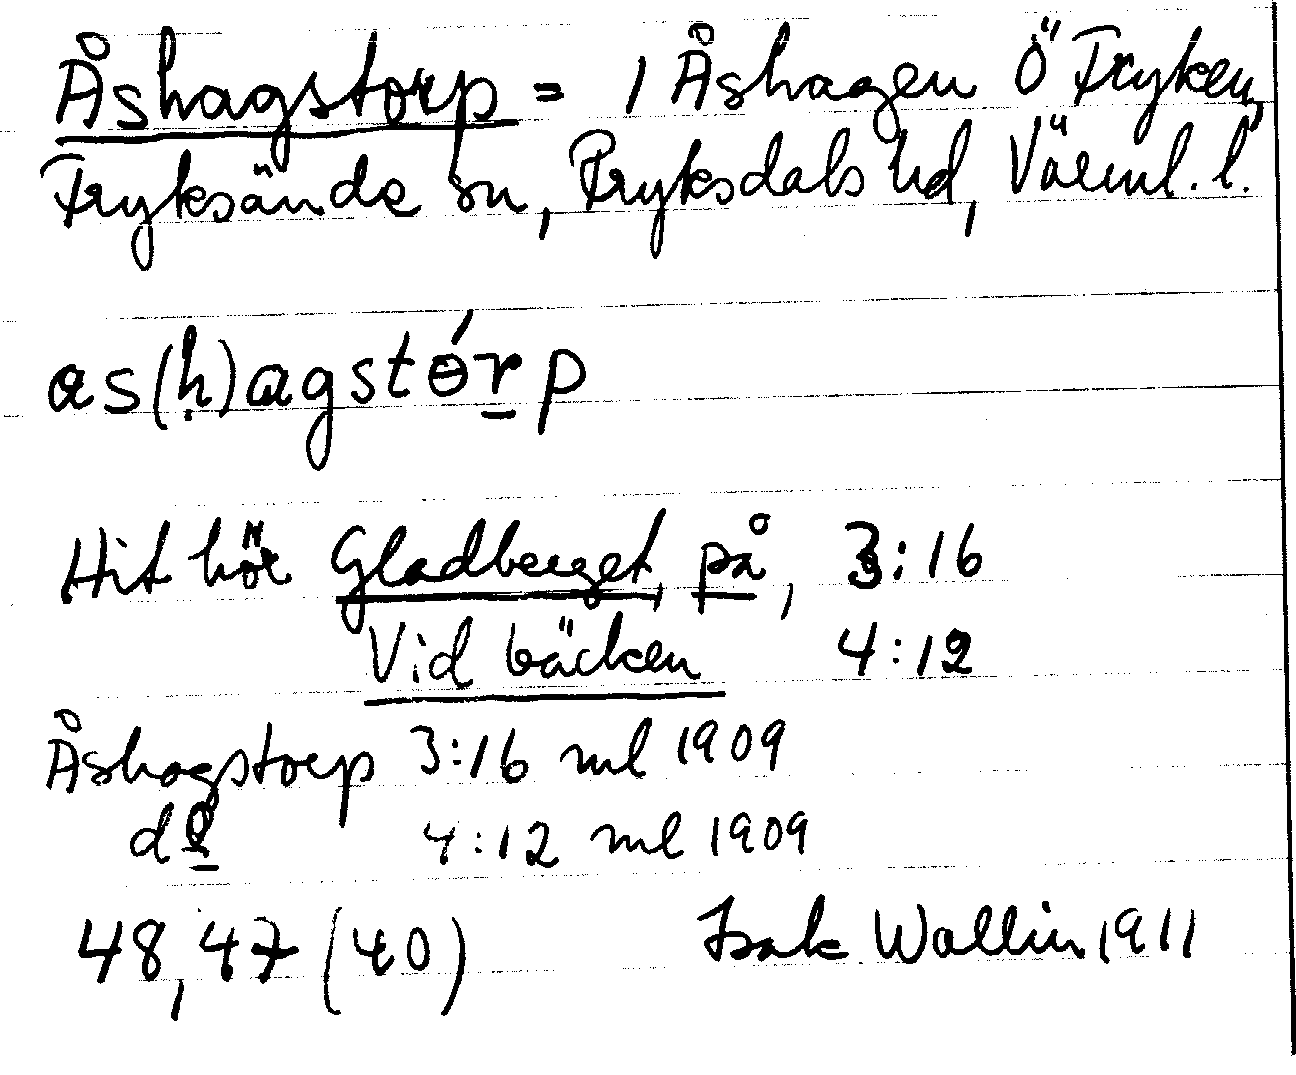 Åshagstorp = 1 Åshagen Ö Fryken,
Fryksände sn, Fryksdals hd, Värml. l.
as(ḥ)agstɵ́rp
Hit hör Gladberget, på, 3:16
Vid bäcken 4:12
Åshagstorp 3:16 ml 1909
do 4:12 ml 1909
48, 47 (40) Isak Wallin 1911